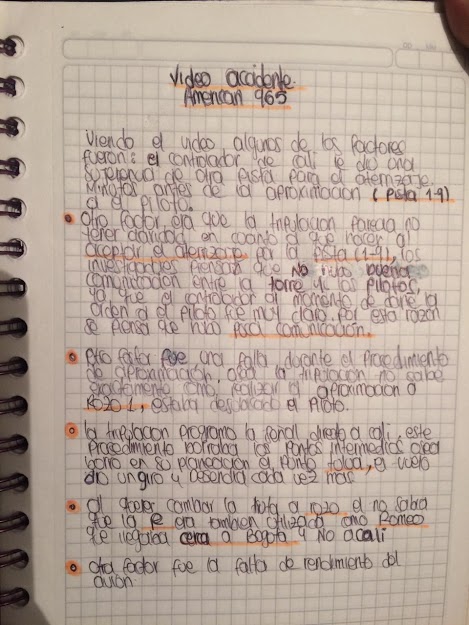 Video accidente.
American 965
Viendo el video, algunos de los factores
fueron: el controlador de cali le dio una
sugerencia de otra pista para el aterrizaje.
Minutos antes de la aproximación (Pista 1-9)
a el Piloto.
otro factor, era que la tripulación parecia no
tener claridad en cuanto a que hacer al
aceptar el aterrizaje por la Pista (1-9), los
investigadores piensan que No hubo buena
comunicación entre la torre y los pilotos,
ya que el controlador al momento de darle la
orden a el Piloto fue muy claro. Por esta razon
se piensa que hubo comunicación.
Otro factor fue una falla durante el Procedimiento
de aproximación, osea la tripulación no sabia
exactamente como realizar la aproximación a
ROZO 1, estaba descuidado el Piloto.
la tripulación programo la señal directo a cali, este
Procedimiento borraba los Puntos intermedios osea
borro en su planeación el Punto tulua, el vuelo
dio un giro y descendia cada vez mas
al querer cambiar la ruta a rozo el no sabia
que la R era tambien utilizada como Romeo
que llegaba cerca a Bogota y No a cali
otro factor fue la falta de rendimiento del
avion.